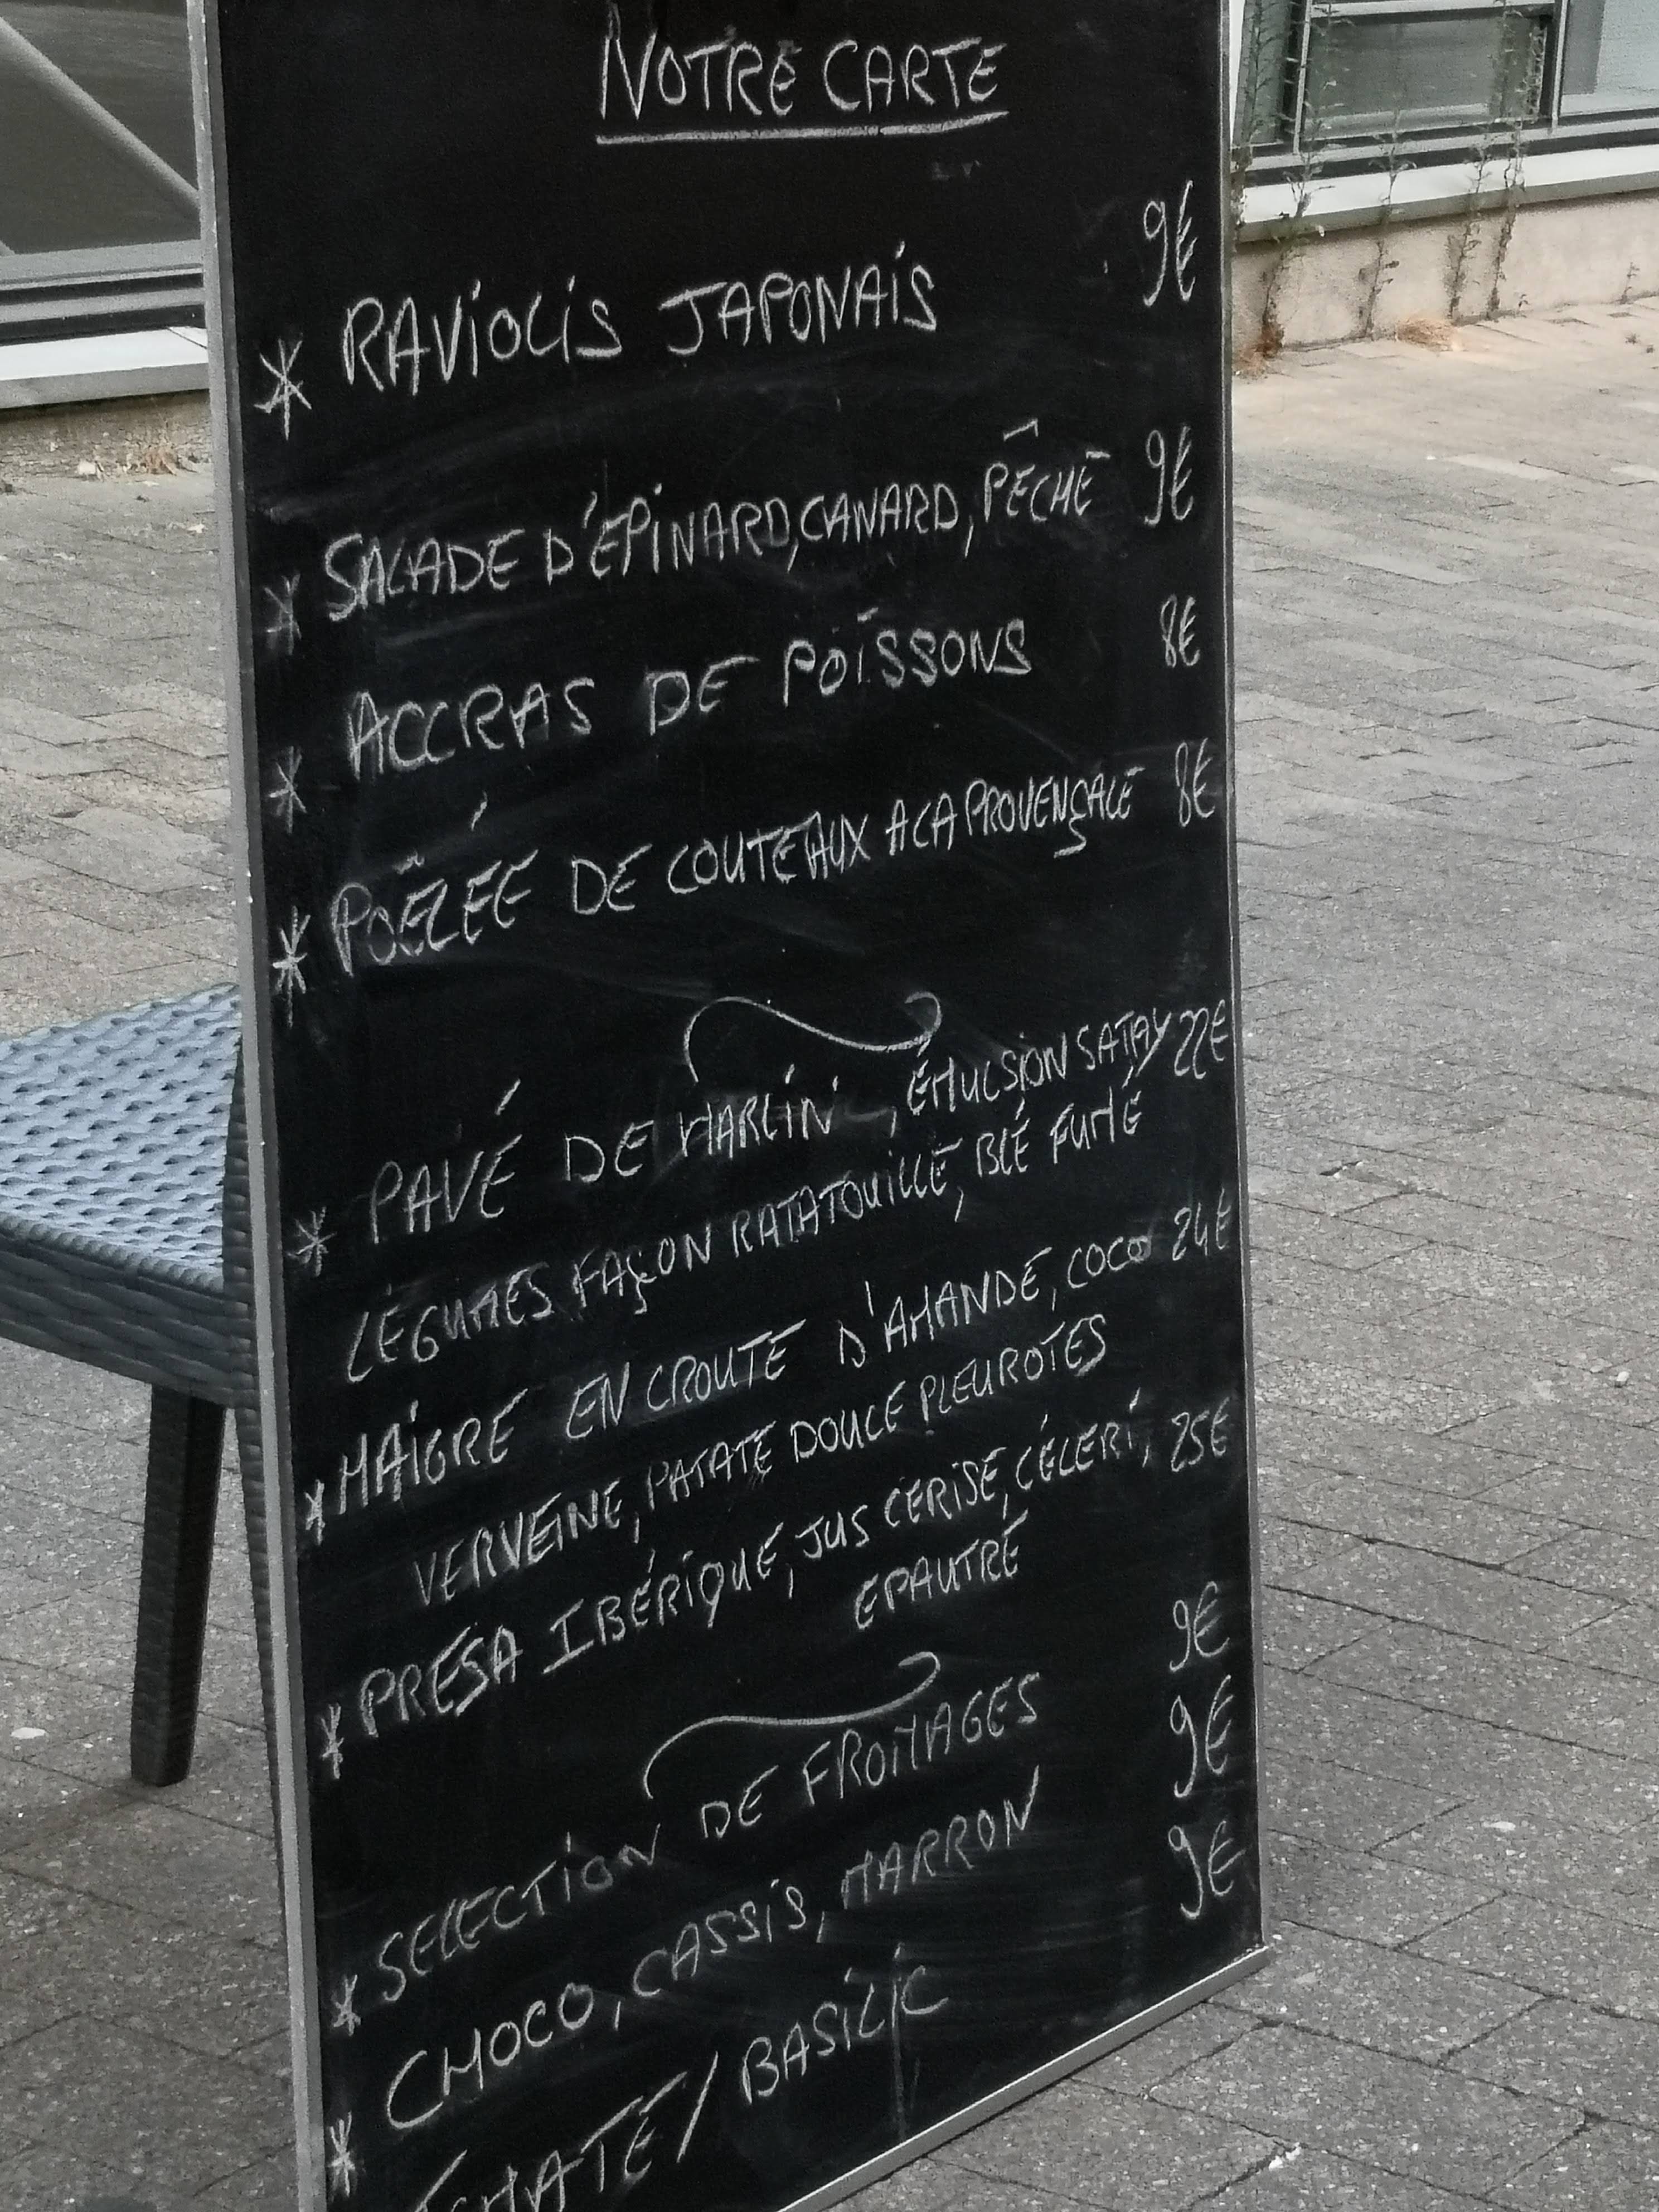 NOTRE CARTE
* RAVIOLIS JAPONAIS 9€
* SALADE D'ÉPINARD, CANARD, PÊCHE 9€
* ACCRAS DE POISSONS 8€
* POÊLÉE DE COUTEAUX A LA PROVENÇALE 8€
* PAVÉ DE MARLIN, ÉMULSION SATAY 22€
LÉGUMES FAÇON RATATOUILLE, BLÉ FUMÉ
* MAIGRE EN CROUTE D'AMANDE, COCO 24€
VERVEINE, PATATE DOUCE PLEUROTES
* PRESA IBÉRIQUE, JUS CERISE, CÉLERI, 25€
EPAUTRE
* SELECTION DE FROMAGES 9€
* CHOCO, CASSIS, MARRON 9€
/ BASILIC 9€